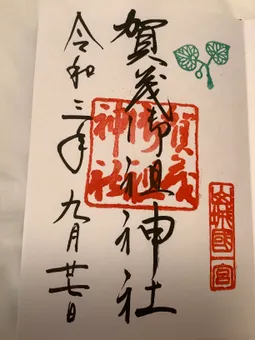 山城國一宮
賀茂御祖神社
賀茂御祖神社
令和三年九月廿七日